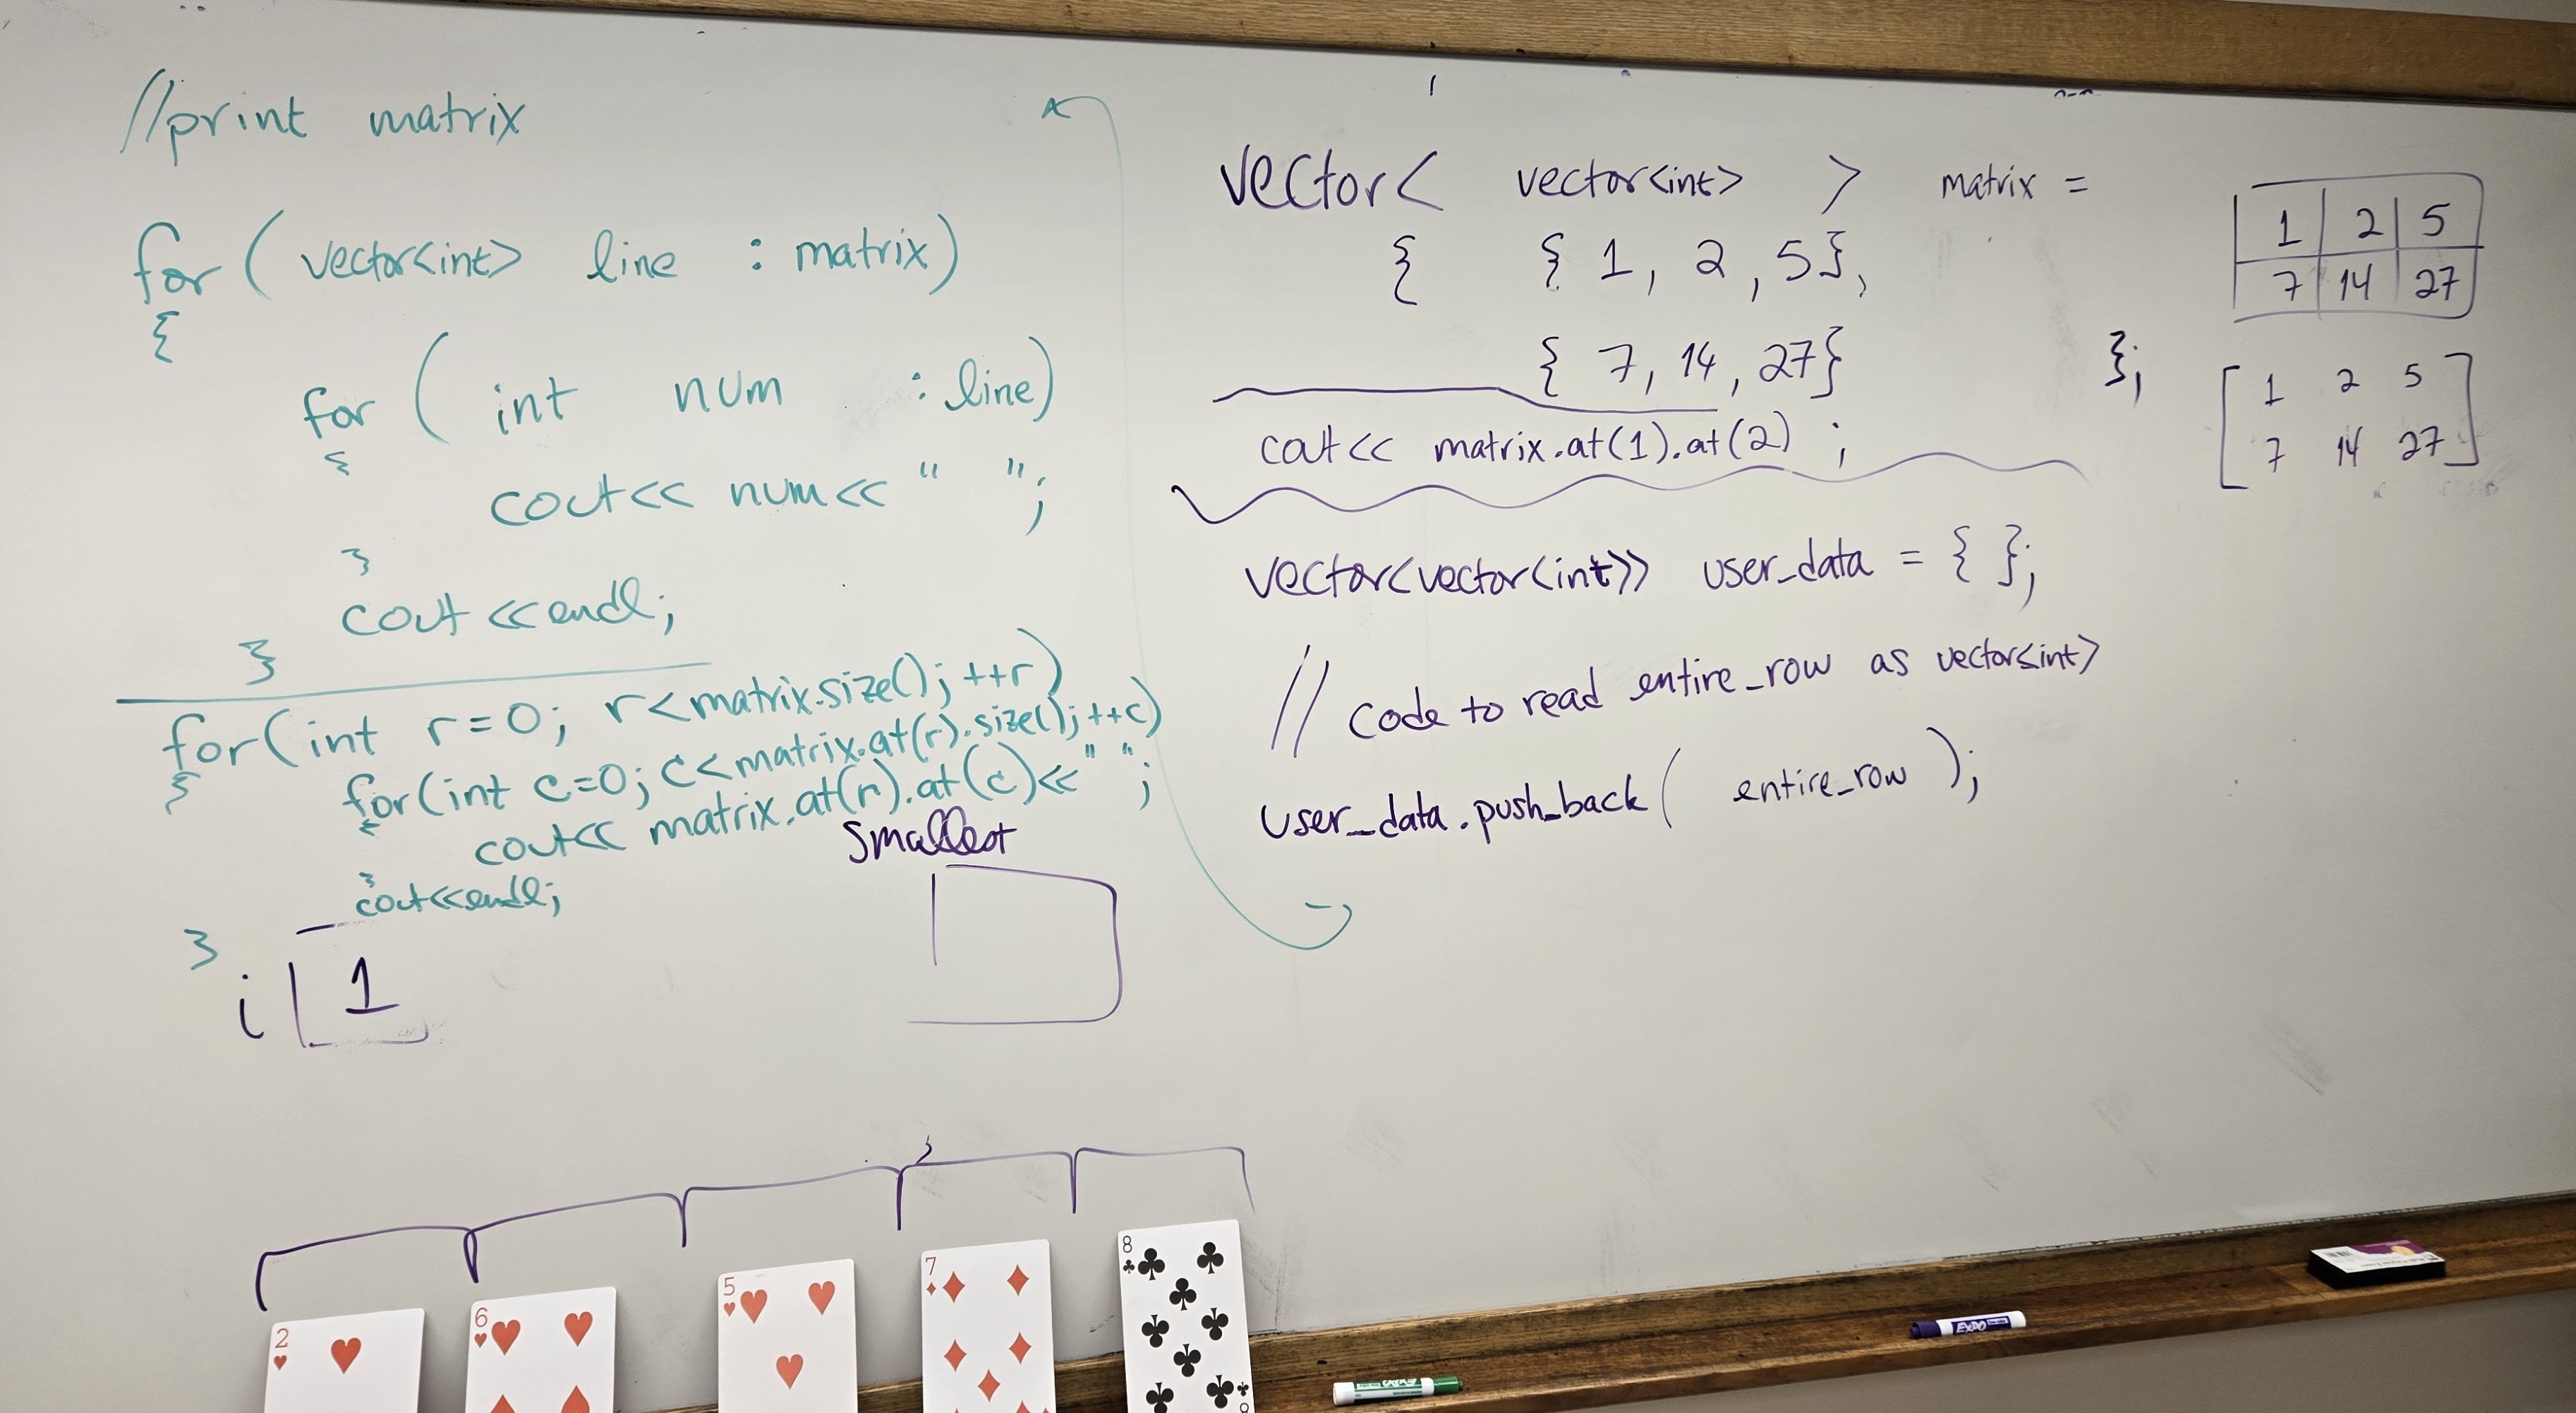 //print matrix
for ( vector<int> line : matrix)
{
for ( int num : line)
{
cout<< num<< " ";
}
cout <<endl;
}
for(int r=0; r<matrix.size(); ++r)
{
for(int c=0; c<matrix.at(r).size(); ++c)
{
cout<< matrix.at(r).at(c)<<" ";
}
cout<<endl;
}
i 1
smallest
vector< vector<int> > matrix =
{ { 1, 2, 5},
{ 7, 14, 27}
};
cout<< matrix.at(1).at(2) ;
vector<vector<int>> user_data = { };
// code to read entire_row as vector<int>
user_data.push_back( entire_row );
1 2 5
7 14 27
1 2 5
7 14 27
2
6
5
7
8
8
EXPO
EXPO